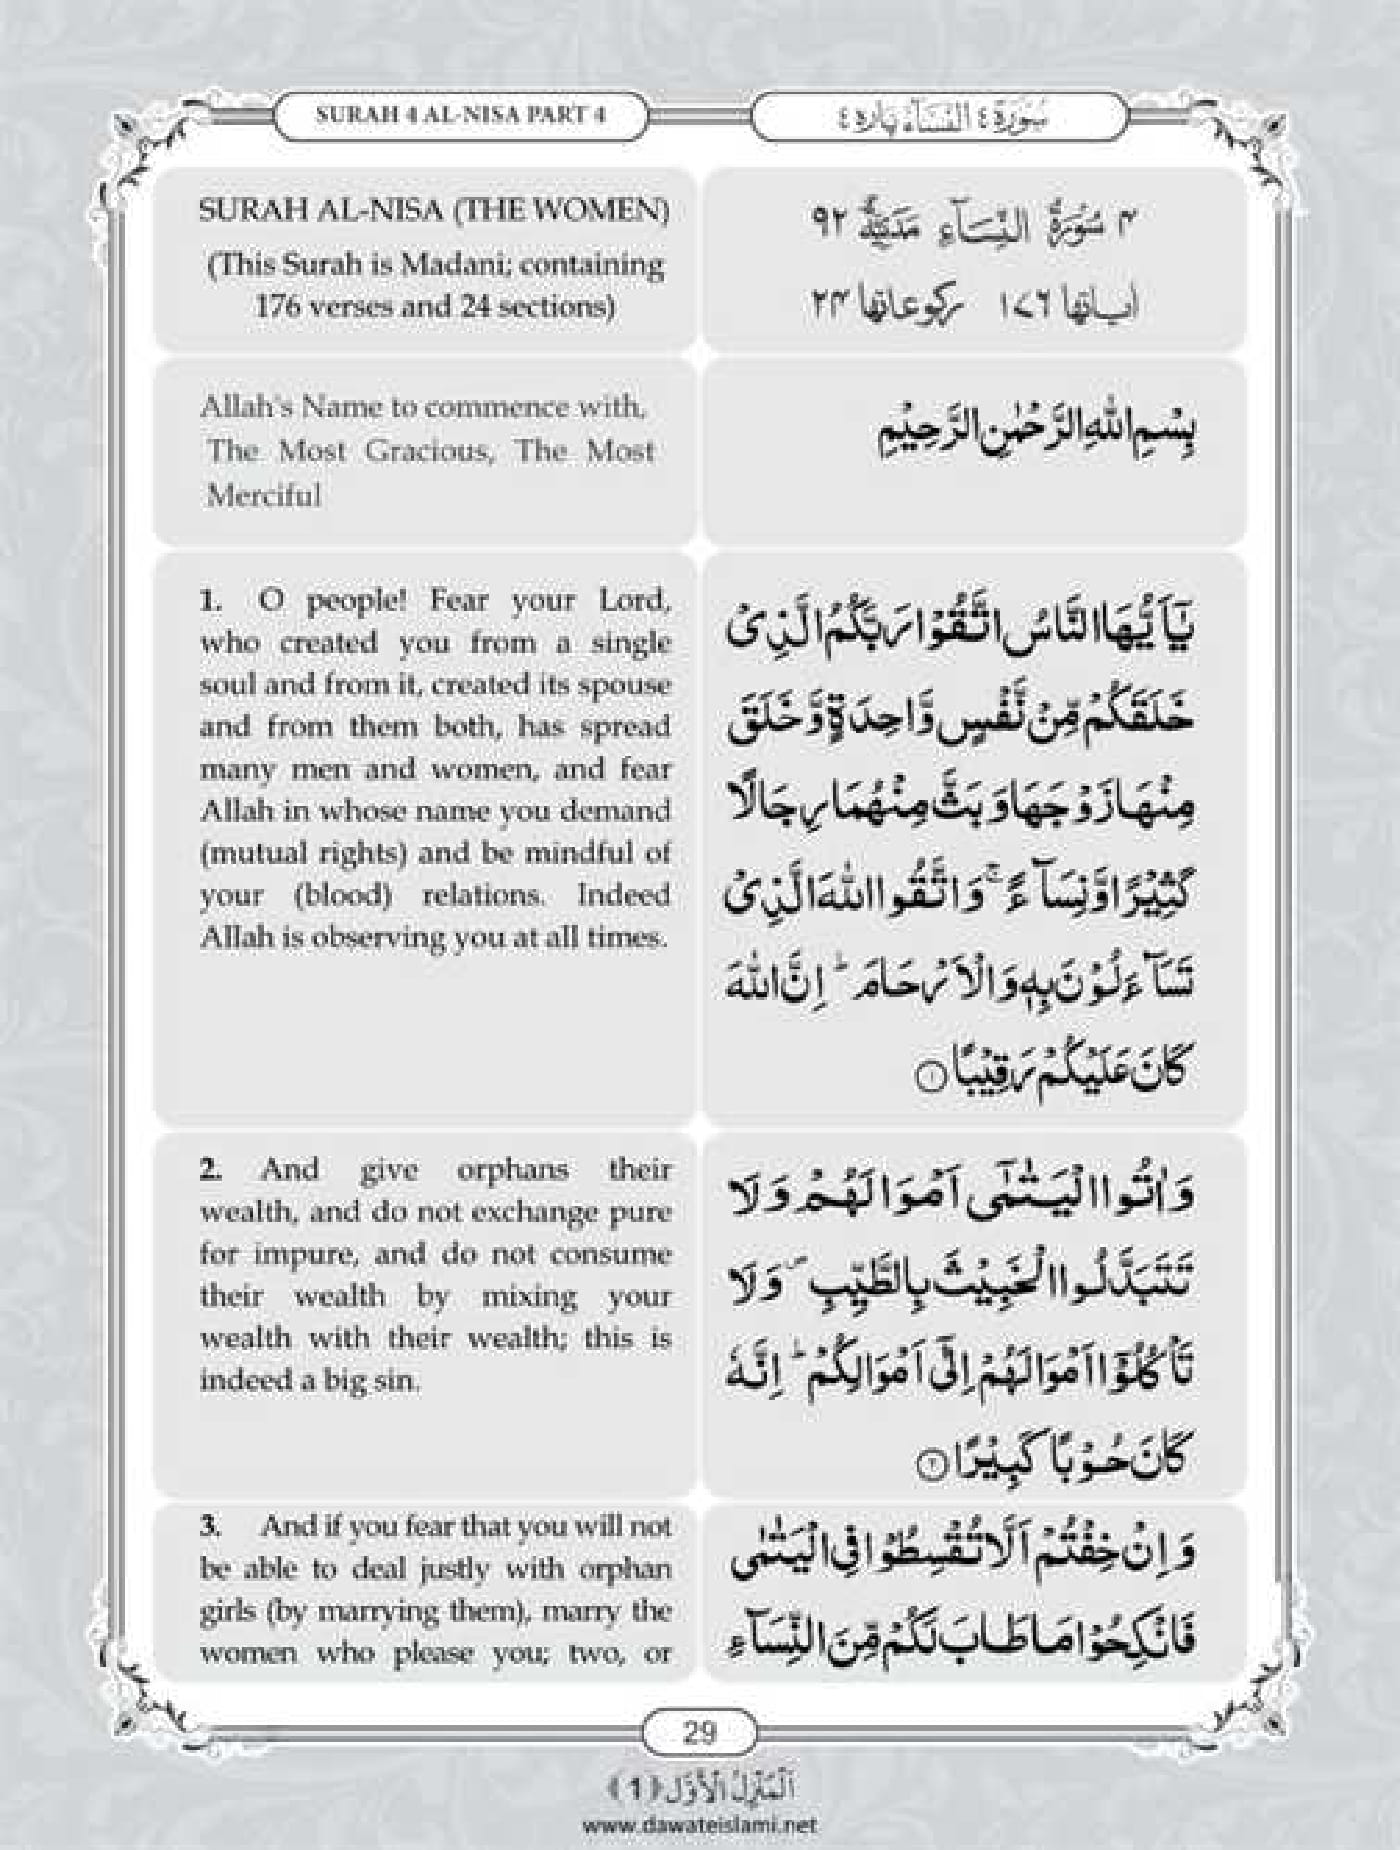 SURAH 4 AL-NISA PART 4
سُوْرَة ٤ النِّسَآء پاره ٤
SURAH AL-NISA (THE WOMEN)
(This Surah is Madani; containing
176 verses and 24 sections)
۴ سُوْرَةُ النِّسَآءِ مَدَنِيَّةٌ ۹۲
اٰياتها ۱۷٦ ركوعاتها ۲۴
Allah's Name to commence with,
The Most Gracious, The Most
Merciful
بِسْمِ اللّٰهِ الرَّحْمٰنِ الرَّحِيْمِ
1. O people! Fear your Lord,
who created you from a single
soul and from it, created its spouse
and from them both, has spread
many men and women, and fear
Allah in whose name you demand
(mutual rights) and be mindful of
your (blood) relations. Indeed
Allah is observing you at all times.
يٰۤاَيُّهَا النَّاسُ اتَّقُوْا رَبَّكُمُ الَّذِیْ
خَلَقَكُمْ مِّنْ نَّفْسٍ وَّاحِدَةٍ وَّ خَلَقَ
مِنْهَا زَوْجَهَا وَ بَثَّ مِنْهُمَا رِجَالًا
كَثِيْرًا وَّ نِسَآءً ۚ وَ اتَّقُوا اللّٰهَ الَّذِیْ
تَسَآءَلُوْنَ بِهٖ وَ الْاَرْحَامَ ؕ اِنَّ اللّٰهَ
كَانَ عَلَيْكُمْ رَقِيْبًا ۱
2. And give orphans their
wealth, and do not exchange pure
for impure, and do not consume
their wealth by mixing your
wealth with their wealth; this is
indeed a big sin.
وَ اٰتُوا الْيَتٰمٰۤى اَمْوَالَهُمْ وَ لَا
تَتَبَدَّلُوا الْخَبِيْثَ بِالطَّيِّبِ ۪ وَ لَا
تَاْكُلُوْۤا اَمْوَالَهُمْ اِلٰۤى اَمْوَالِكُمْ ؕ اِنَّهٗ
كَانَ حُوْبًا كَبِيْرًا ۲
3. And if you fear that you will not
be able to deal justly with orphan
girls (by marrying them), marry the
women who please you; two, or
وَ اِنْ خِفْتُمْ اَلَّا تُقْسِطُوْا فِی الْيَتٰمٰى
فَانْكِحُوْا مَا طَابَ لَكُمْ مِّنَ النِّسَآءِ
29
اَلْمَنْزِلُ الْاَوَّل (1)
www.dawateislami.net